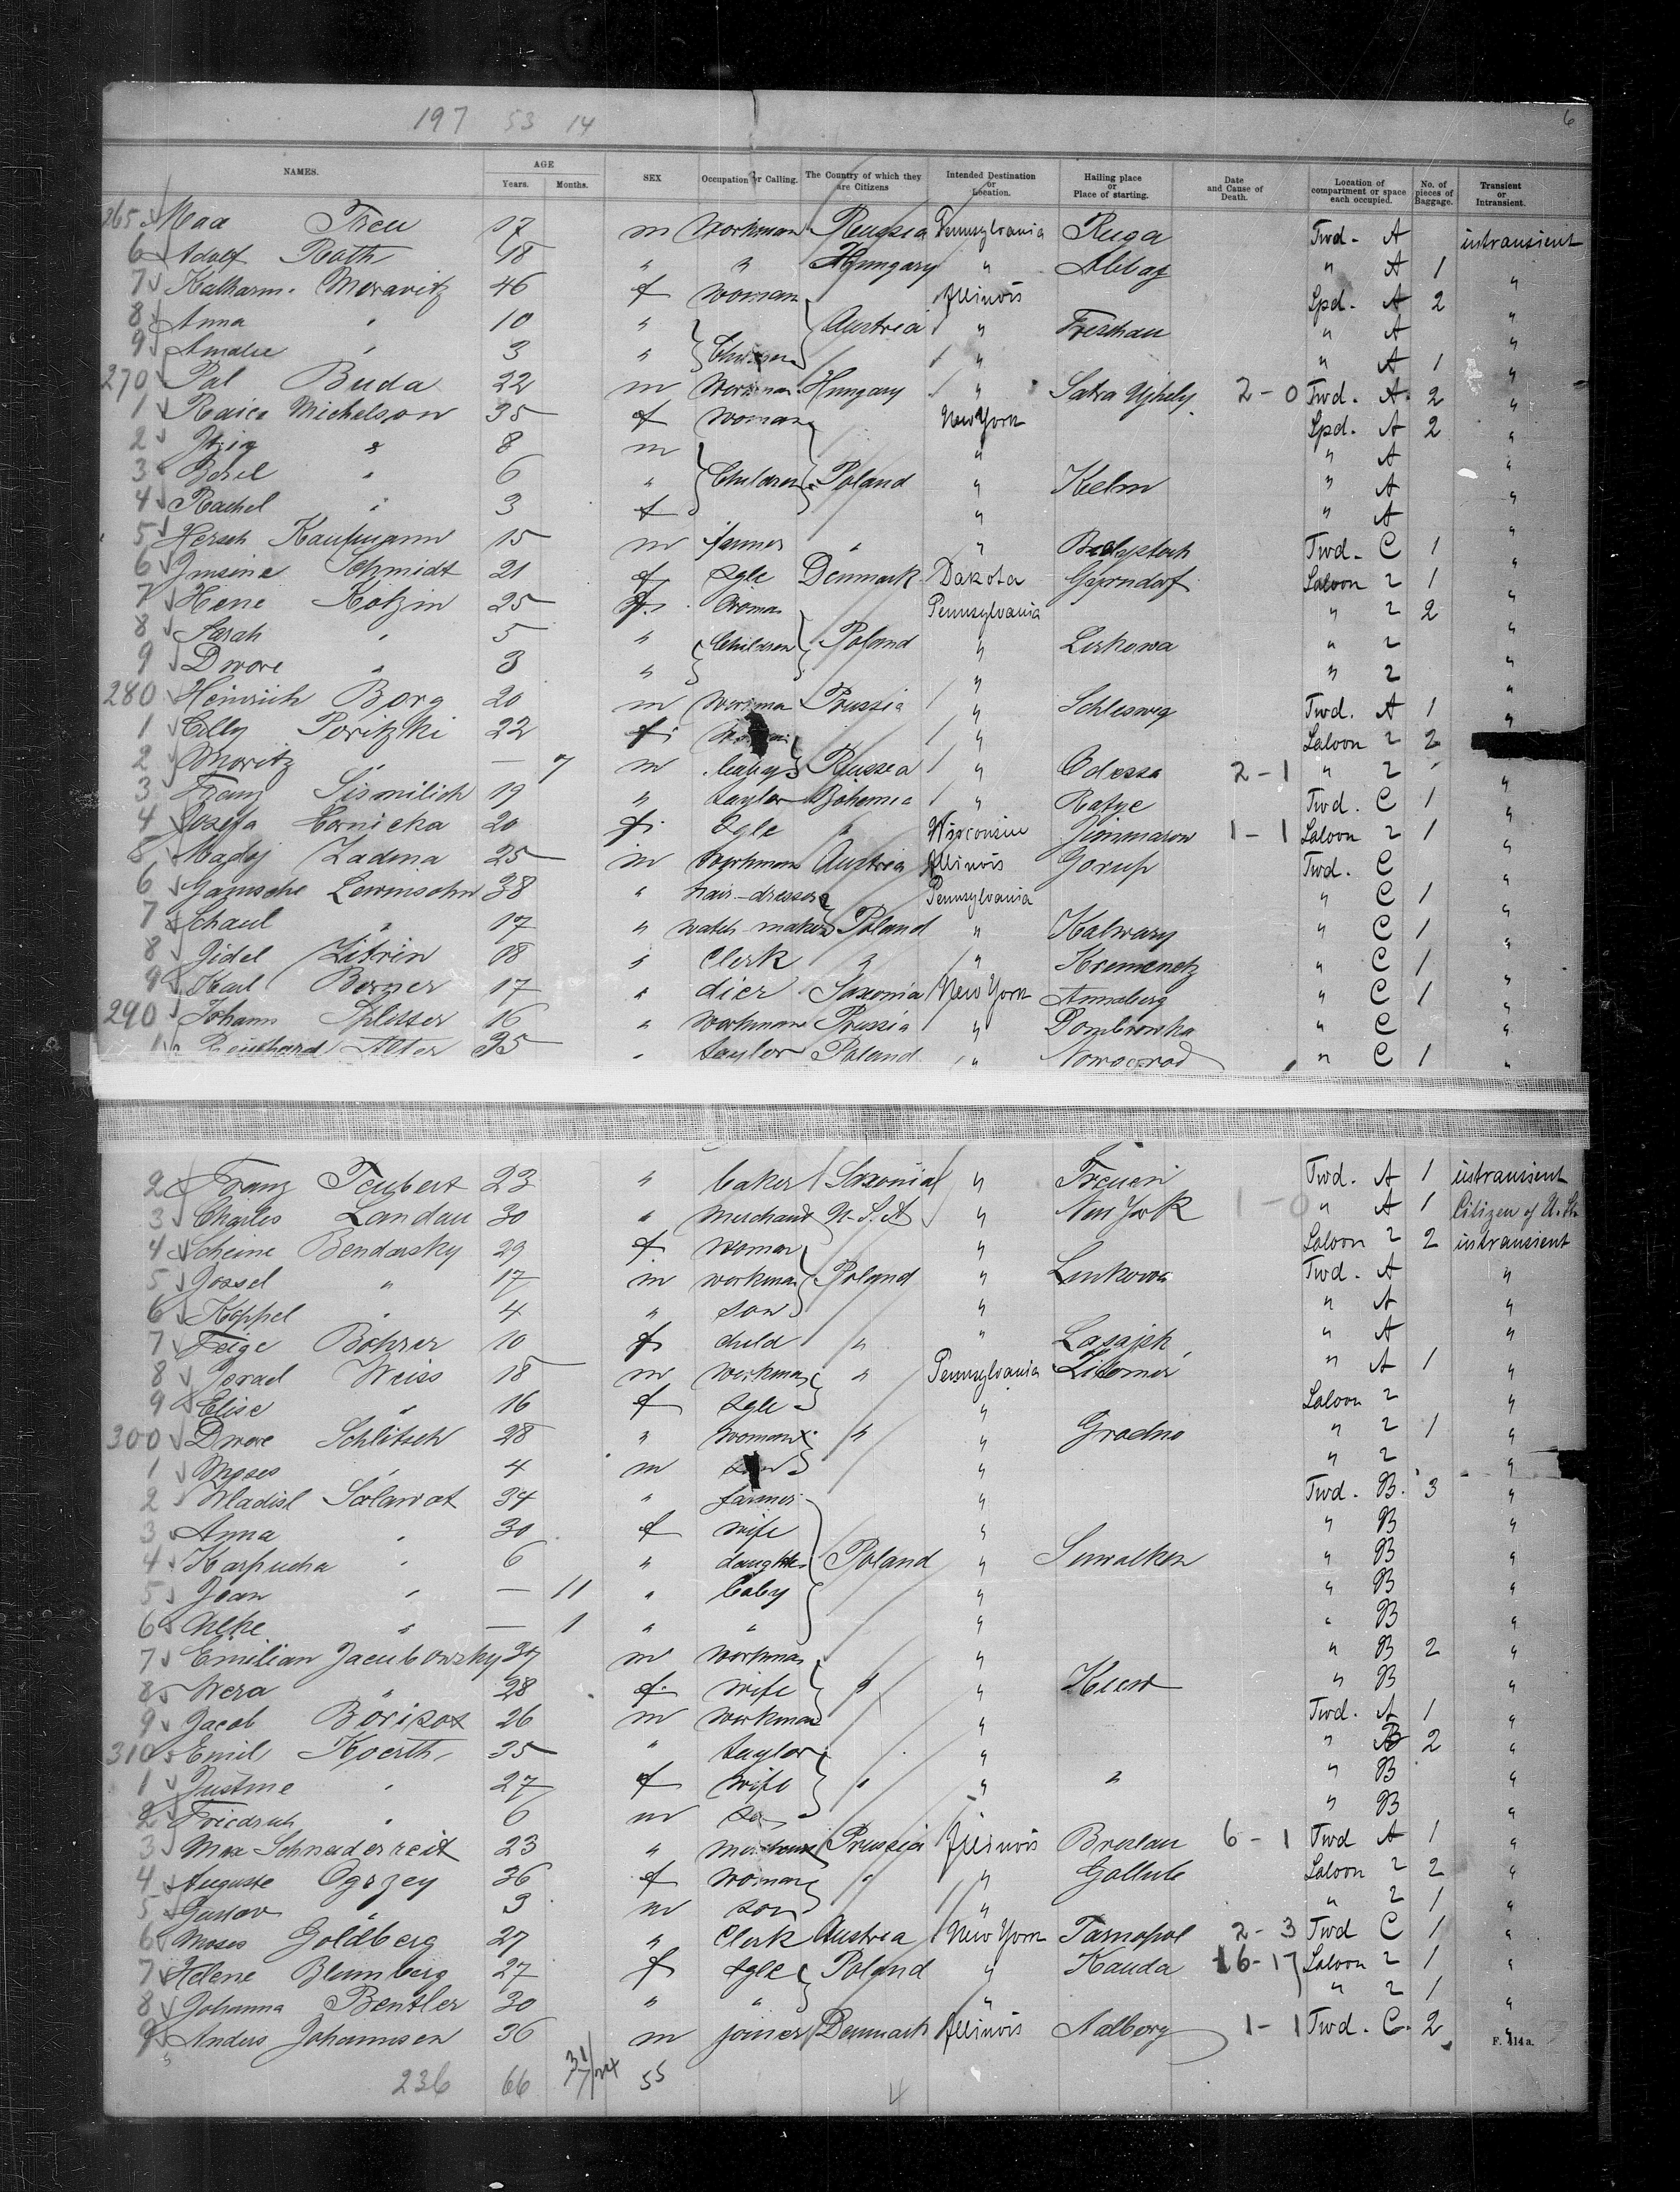 197 53 14 6
NAMES. AGE Years. Months. SEX Occupation or Calling. The Country of which they are Citizens Intended Destination or Location. Hailing place or Place of starting. Date and Cause of Death. Location of compartment or space each occupied. No. of pieces of Baggage. Transient or Intransient.
265 Max Treu 17 m workman Russia Pennsylvania Ruga Twd. A intransient
6 Adolf Roth 48 " " Hungary " A 1 "
7 Katharin. Moravitz 46 f woman Illinois Spd. A 2 "
8 Anna " 10 " Austria " Freschau " A "
9 Amalie " 3 " Children " " A 1 "
270 Pal Buda 22 m workman Hungary " Satra Ujhely 2-0 Twd. A. 2 "
1 Raice Michelson 35 f woman New York Spd. A 2 "
2 Itzig " 8 m " " A "
3 Berel " 6 " Children Poland " Kelm " A "
4 Rachel " 3 f " " A "
5 Hersch Kaufmann 15 m farmer " " Twd. C 1 "
6 Schmidt 21 f sgle Denmark Dakota Saloon 2 1 "
7 Hene Kotzin 25 f. woman Pennsylvania " 2 2 "
8 Sarah " 5 " Children Poland " Liskowa " 2 "
9 Dwore " 3 " " " 2 "
280 Heinrich Borg 20 m Prussia " Schleswig Twd. A 1 "
1 Cilly Poritzki 22 f " Saloon 2 2
2 Moritz " — 7 m baby Russia " Odessa 2-1 " 2 "
3 Franz Sismilich 19 " taylor Bohemia " Twd. C 1 "
4 Josefa 20 f. sgle " Wisconsin 1-1 Saloon 2 1 "
5 Zadina 25 m workman Austria Illinois Gorup Twd. C "
6 Lewinsohn 38 " hair-dresser Pennsylvania " C 1 "
7 Schaul " 17 " watch-maker Poland " Kalwary " C 1 "
8 Jidel Zitrin 18 " Clerk " " Kremenetz " C 1 "
9 Karl Borner 17 " dier Saxonia New York Annaberg " C 1 "
290 Johann Splisser 16 " workman Prussia " Dombrowka " C "
1 Reinhard Alter 35 " taylor Poland " " C 1 "
2 Franz Teubert 23 " baker Saxonia " Treuen Twd. A 1 intransient
3 Charles Landau 30 " merchant U.S.A " New York 1-0 " A 1 Citizen of U. St.
4 Scheine Bendarsky 29 f woman " Saloon 2 2 intransient
5 Jossel " 17 m workman Poland " Linkowa Twd. A "
6 Koppel " 4 " son " " A "
7 Feige Bohrer 10 f child " " " A "
8 Israel Weiss 18 m workman " Pennsylvania " A 1 "
9 Elise " 16 f sgle " Saloon 2 "
300 Dwore Schlötsch 28 " woman " " Grodno " 2 1 "
1 Moses " 4 m son " " 2 "
2 Wladisl Salawat 34 " farmer " Twd. B. 3 "
3 Anna " 30 f wife " " B "
4 Karpucha " 6 " daughter Poland " Suwalken " B "
5 Joan " — 11 " baby " " B "
6 " — 1 " " " " B "
7 Emilian Jacubowsky 37 m workman " " B 2 "
8 Wera " 28 f wife " " Kiew " B "
9 Jacob Borisox 26 m workman " Twd. A 1 "
310 Emil Koerth 35 " taylor " " B 2 "
1 Justine " 27 f wife " " " " B "
2 Friedrich " 6 m " B "
3 Max Schneidereit 23 " merchant Prussia Illinois Breslau 6-1 Twd A 1 "
4 Auguste Ogrzey 36 f woman " " Gollub Saloon 2 2 "
5 Gustav " 9 m son " " 2 1 "
6 Moses Goldberg 27 " Clerk Austria New York Tarnopol 2-3 Twd C 1 "
7 Helene Blumberg 27 f sgle Poland " Kauda 16-17 Saloon 2 1 "
8 Johanna Bentler 30 " " " " 2 1 "
9 Anders Johannsen 36 m joiner Denmark Illinois Aalborg 1-1 Twd. C. 2 "
F. 114 a.
236 66 55